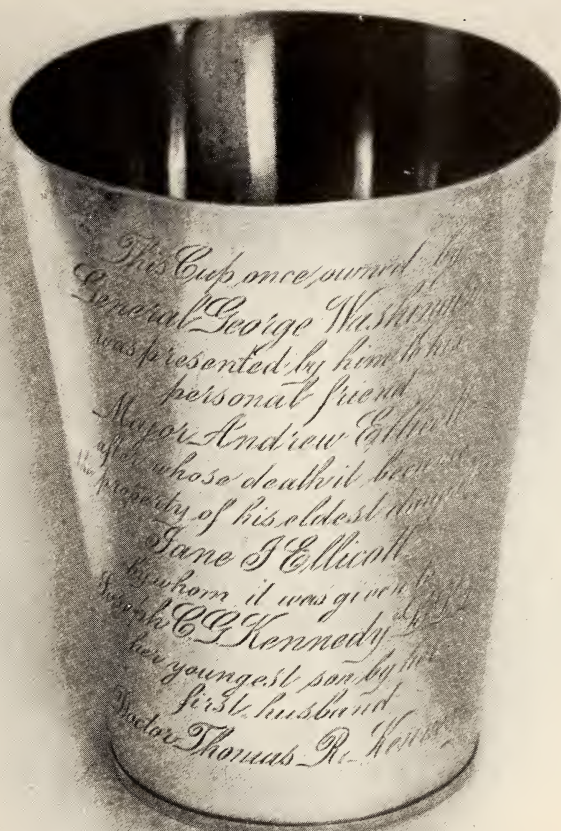 This Cup once owned by
General George Washington
was presented by him to his
personal friend
Major Andrew Ellicott
after whose death it became
the property of his eldest daughter
Jane J Ellicott
by whom it was given to
Joseph C. G. Kennedy
her youngest son by her
first husband
Doctor Thomas R. Kennedy